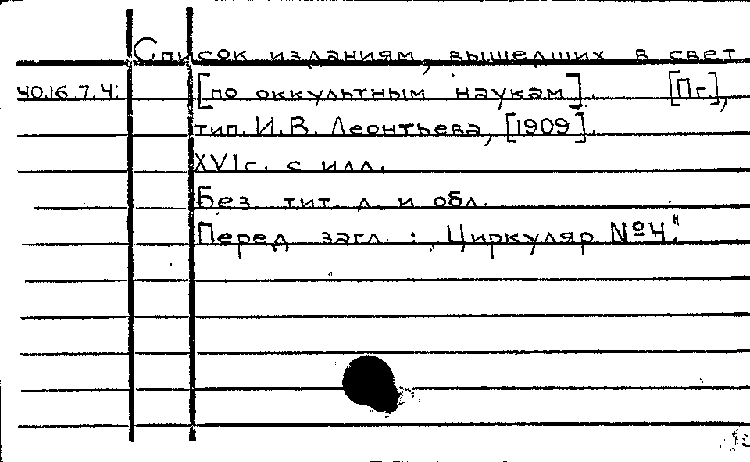 Список изданиям, вышедших в свет
40.16.7.4: [по оккультным наукам]. [Пг.],
тип. И. В. Леонтьева, [1909].
XVI с. с илл.
Без тит. л. и обл.
Перед загл.: „Циркуляр №4".